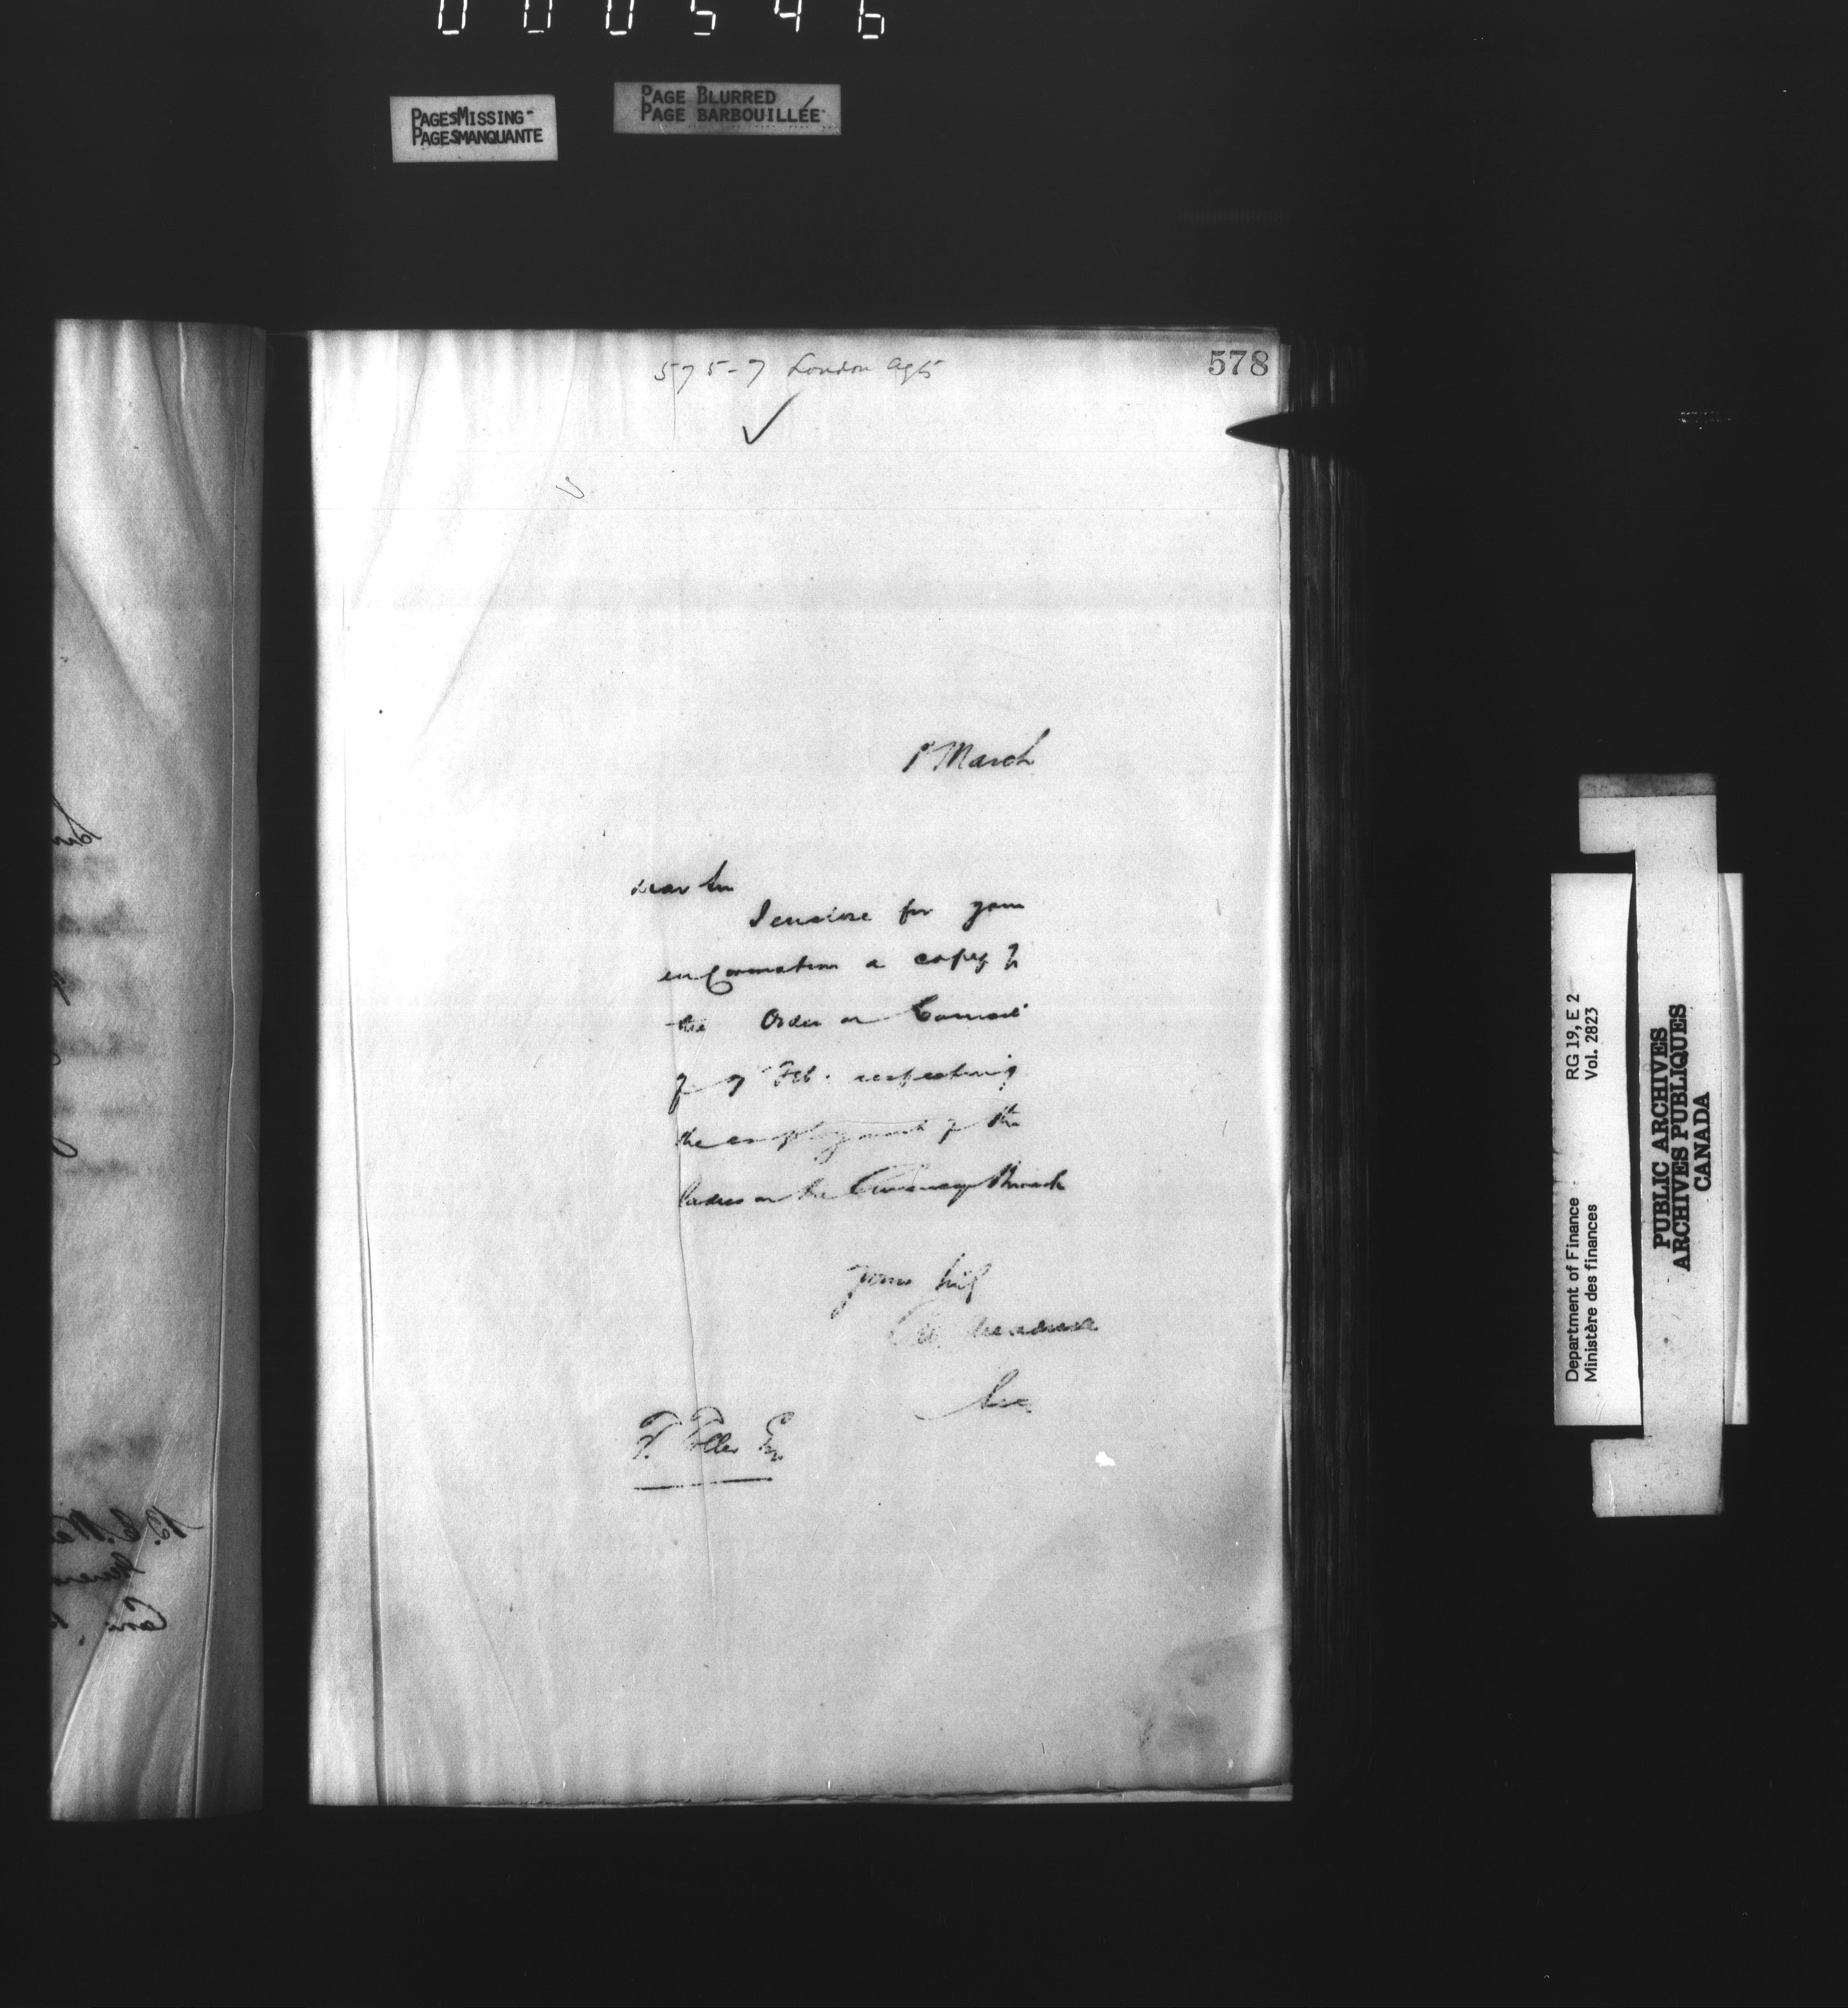 000546
PAGES MISSING
PAGES MANQUANTE
PAGE BLURRED
PAGE BARBOUILLÉE
575-7 London Agts
578
1st March
Dear Sir
I enclose for your
information a copy of
the Order in Council
of 7 Feb. respecting
the employment of the
ladies in the Currency Branch
Yours truly
Sec
T. Esq
Department of Finance RG 19, E 2
Ministère des finances Vol. 2823
PUBLIC ARCHIVES
ARCHIVES PUBLIQUES
CANADA